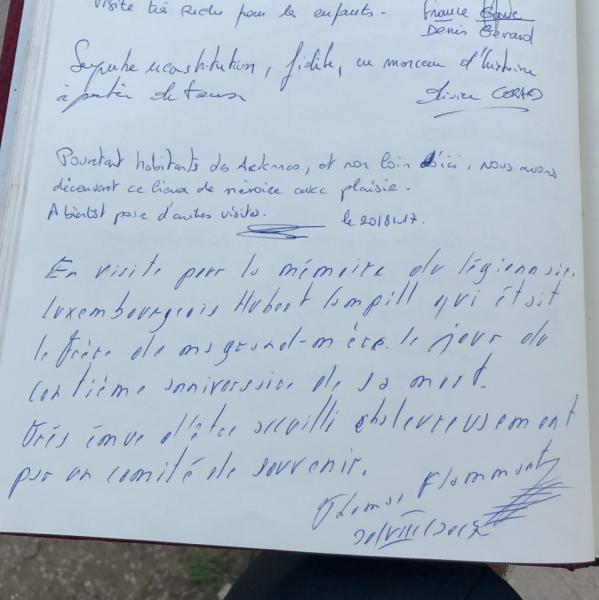 Visite très riche pour les enfants.
France
Denis Gérard
Superbe reconstitution, fidèle, un morceau d'histoire
à portée de tous
Olivier
Pourtant habitants des Ardennes, et non loin d'ici, nous avons
découvert ce lieux de mémoire avec plaisir.
A bientôt pour d'autres visites.
le 20/8/17.
En visite pour la mémoire du légionnaire
luxembourgeois Hubert qui était
le frère de ma grand-mère le jour du
centième anniversaire de sa mort.
Très émue d'être accueilli chaleureusement
par un comité de souvenir.
Flammant
20/VIII/2017